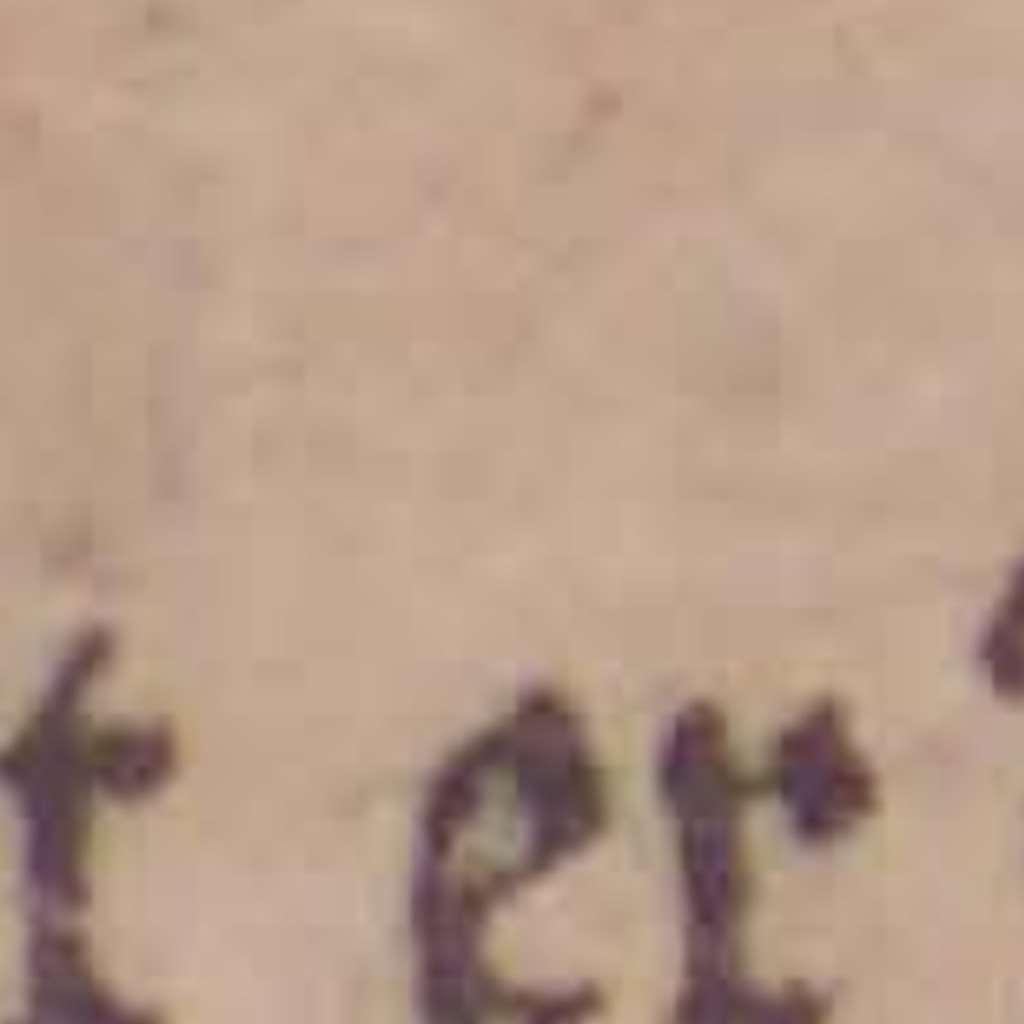 t er